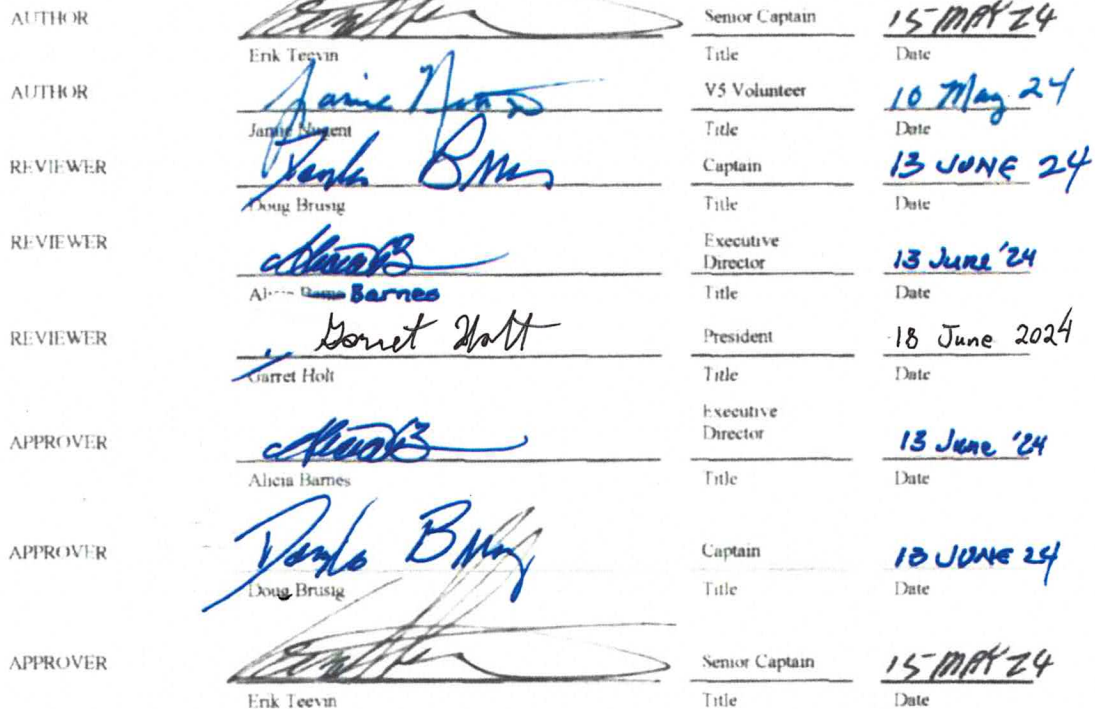 AUTHOR Senior Captain 15 MAY 24
Erik Teevin Title Date
AUTHOR Jamie V5 Volunteer 10 May 24
Jamie Nugent Title Date
REVIEWER Captain 13 JUNE 24
Doug Brusig Title Date
REVIEWER Executive
Director 13 June '24
Barnes Title Date
REVIEWER Garret Holt President 18 June 2024
Garret Holt Title Date
APPROVER Executive
Director 13 June '24
Alicia Barnes Title Date
APPROVER Captain 13 JUNE 24
Doug Brusig Title Date
APPROVER Senior Captain 15 MAY 24
Erik Teevin Title Date